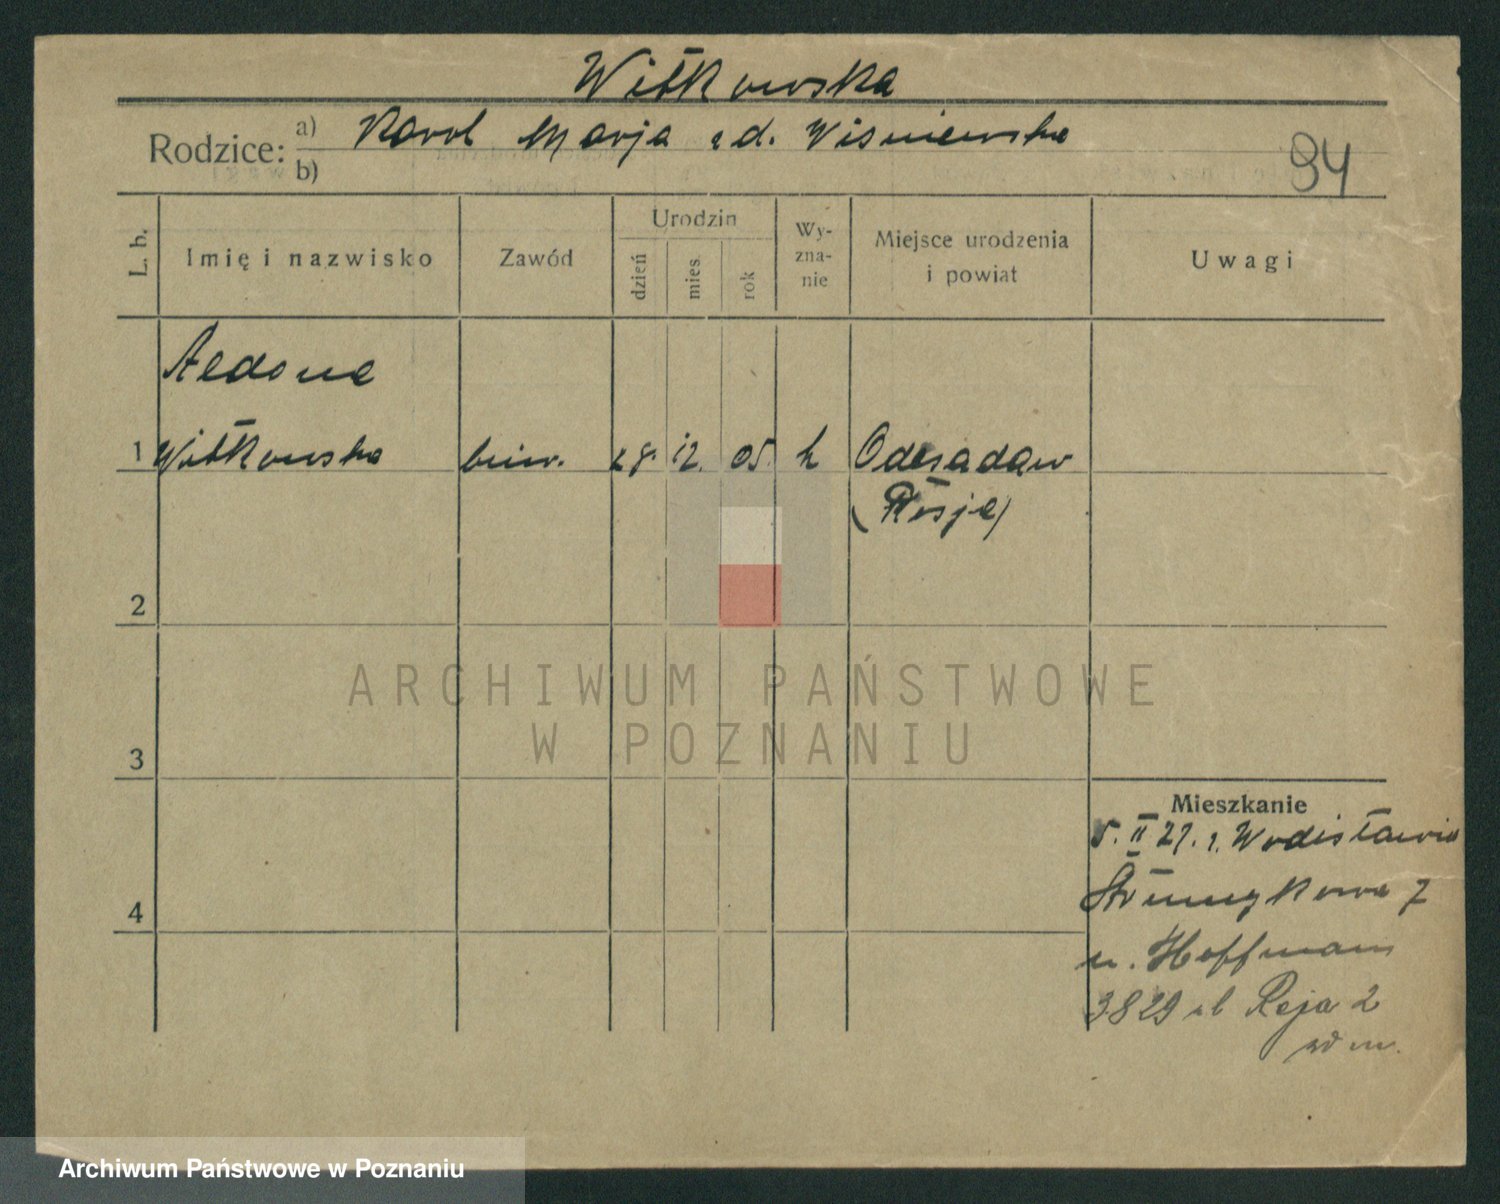 Witkowska
Rodzice: a) Karol Marja z d. Wiśniewska
b)
94
L. b.
Imię i nazwisko
Zawód
Urodzin
dzień
mies.
rok
Wy-
zna-
nie
Miejsce urodzenia
i powiat
Uwagi
Aldona
1 Witkowska biur. 28. 12. 05. k
(Rosja)
2
ARCHIWUM PAŃSTWOWE
W POZNANIU
3
Mieszkanie
5. II 27. z
4
7
u. Hoffmann
3829 Reja 2
Archiwum Państwowe w Poznaniu